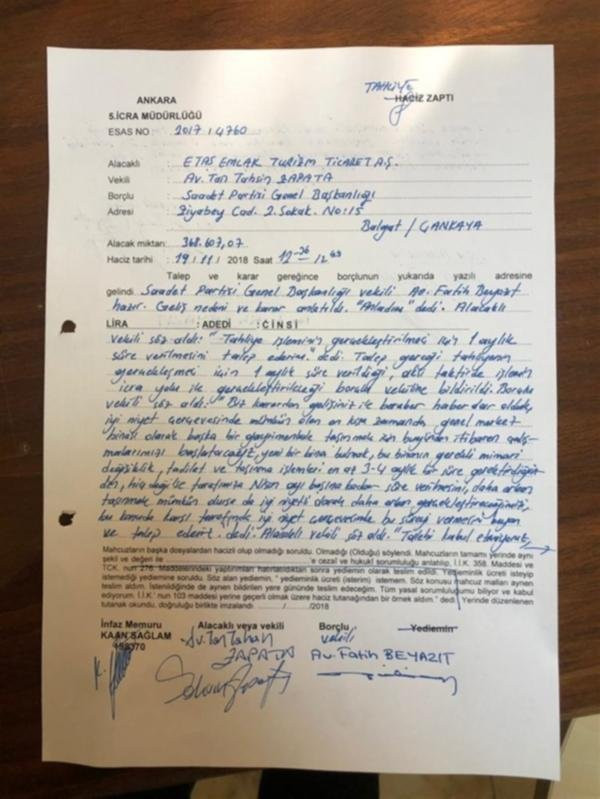 TAHLİYE
ANKARA HACİZ ZAPTI
5.İCRA MÜDÜRLÜĞÜ
ESAS NO : 2017 / 4760
Alacaklı : ETAŞ EMLAK TURİZM TİCARET AŞ.
Vekili : Av. Tan Tahsin ZAPATA
Borçlu : Saadet Partisi Genel Başkanlığı
Adresi : Ziyabey Cad. 2. Sokak. No:15
Balgat / ÇANKAYA
Alacak miktarı: 368.607,07
Haciz tarihi : 19 / 11 / 2018 Saat
Talep ve karar gereğince borçlunun yukarıda yazılı adresine
gelindi Saadet Partisi Genel Başkanlığı vekili Av. Fatih Beyazıt
hazır. Geliş nedeni ve karar anlatıldı. "Anladım" dedi. Alacaklı
LİRA : ADEDİ : CİNSİ
vekili söz aldı: "Tahliye işleminin gerçekleştirilmesi için 1 aylık
süre verilmesini talep ederim." dedi. Talep gereği tahliyenin
gerçekleşmesi için 1 aylık süre verildiği, aksi taktirde işlemin
icra yolu ile gerçekleştirileceği borçlu vekiline bildirildi. Borçlu
vekili söz aldı: "Biz karardan gelişiniz ile beraber haberdar olduk,
iyi niyet çerçevesinde mümkün olan en kısa zamanda, genel merkez
binası olarak başka bir taşınmak için bugünden itibaren çalış-
malarımızı başlatacağız, yeni bir bina bulmak, bu binanın gerekli mimari
değişiklik, tadilat ve taşınma işlemleri en az 3-4 aylık bir süre gerektirdiğin-
den, hiç değilse tarafımıza Nisan ayı başına kadar süre verilmesini, daha erken
taşınmak mümkün olursa da iyi niyetli olarak daha erken gerçekleştireceğimizi,
bu konuda karşı tarafında iyi niyet çerçevesinde bu süreyi vermesini beyan
ve talep ederiz. dedi. Alacaklı vekili söz aldı. "Talebi kabul etmiyoruz,
Mahcuzların başka dosyalardan hacizli olup olmadığı soruldu. Olmadığı (Olduğu) söylendi. Mahcuzların tamamı yerinde aynı
şekil ve değeri ile 'e cezai ve hukuki sorumluluğu anlatılıp, İ.İ.K. 358. Maddesi ve
TCK. nun 276. Maddelerindeki yaptırımları hatırlatıldıktan sonra yediemin olarak teslim edildi. Yedieminlik ücreti isteyip
istemediği yediemine soruldu. Söz alan yediemin, " yedieminlik ücreti (isterim) istemem. Söz konusu mahcuz malları aynen
teslim aldım. İstenildiğinde de aynen bildirilen yere gününde teslim edeceğim. Tüm yasal sorumluluğumu biliyor ve kabul
ediyorum. İ.İ.K' nun 103 maddesi yerine geçerli olmak üzere haciz tutanağından bir örnek aldım." dedi. Yerinde düzenlenen
tutanak okundu, doğruluğu birlikte imzalandı. / /2018
İnfaz Memuru Alacaklı veya vekili Borçlu Yediemin
KAAN SAĞLAM Av. Tan Tahsin vekili
ZAPATA Av. Fatih BEYAZIT